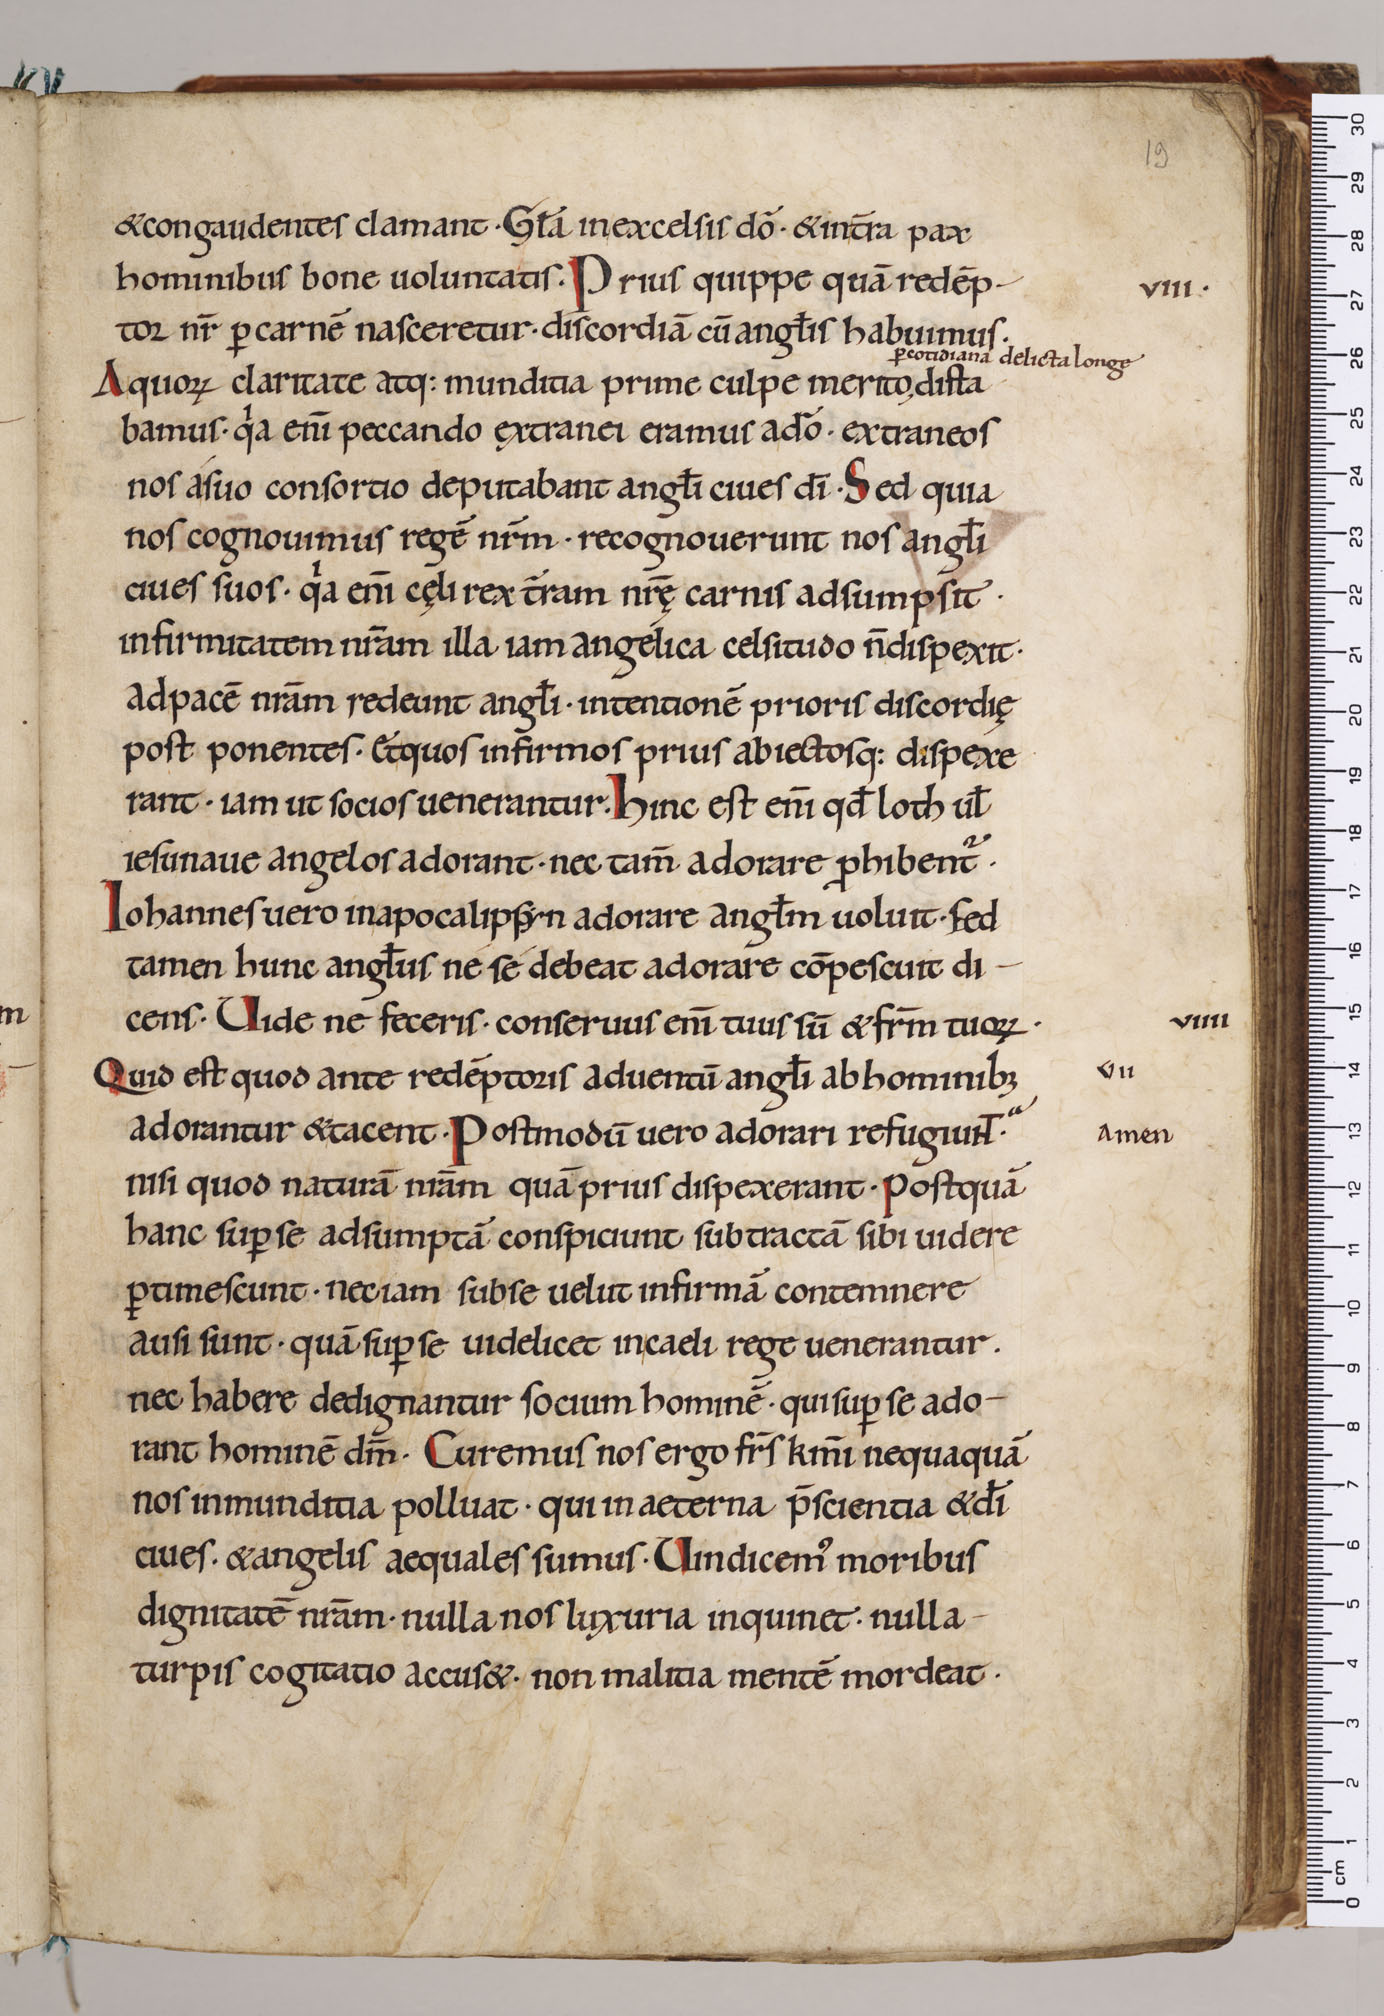 19
&congaudentes clamant · Gła inexcelsis dō · &intr̄a pax
hominibus bone uoluntatis. Prius quippe quā redēp-
viii ·
tor nr̄ ꝑ carnē nasceretur · discordiā cū angłis habuimus.
ꝑ cotidiana delicta longe
Aquoꝝ claritate atq: munditia prime culpe merito, dista
bamus · qͥa enī peccando ęxtranei eramus adō · extraneos
nos asuo consortio deputabant angłi ciues dī · Sed quia
nos cognouimus regē nr̄m · recognouerunt nos angłi
ciues suos · qͥa enī cęli rex tr̄am nr̄ę carnis adsumpsit ·
infirmitatem nr̄am illa iam angelica celsitudo n̄dispexit ·
adpacē nr̄am redeunt angłi · intentionē prioris discordię
post ponentes · &quos infirmos prius abiectosq: dispexe
rant · iam ut socios uenerantur. hinc est enī qđ loth uł
iesunaue angelos adorant · nec tam̄ adorare ꝓhibent᷑ ·
Iohannes uero inapocalipsyn adorare angłm uoluit · sed
tamen hunc angłus ne se debeat adorare cōpescuit di-
cens · Uide ne feceris · conseruus enī tuus sū & fr̄m tuoꝝ ·
viiii
Quid est quod ante redēptoris aduentū angłi abhominibꝫ
vii
adorantur &tacent · Postmodū uero adorari refugiunt̄ ·
amen
nisi quod naturā nr̄am quā prius dispexerant · postquā
hanc suꝑ se adsumptā conspiciunt subtractā sibi uidere
ꝑtimescunt · neciam subse uelut infirmā contemnere
ausi sunt · quā suꝑ se uidelicet incaeli rege uenerantur.
nec habere dedignantur socium hominē · qui suꝑ se ado-
rant hominē dm̄ · Curemus nos ergo fr̄s km̄i nequaquā
nos inmunditia polluat · qui in aeterna p̄scientia & dī
ciues · &angelis aequales sumus · Uindicemꝰ moribus
dignitatē nr̄am · nulla nos luxuria inquinet · nulla-
turpis cogitatio accus& · non malitia mentē mordeat ·